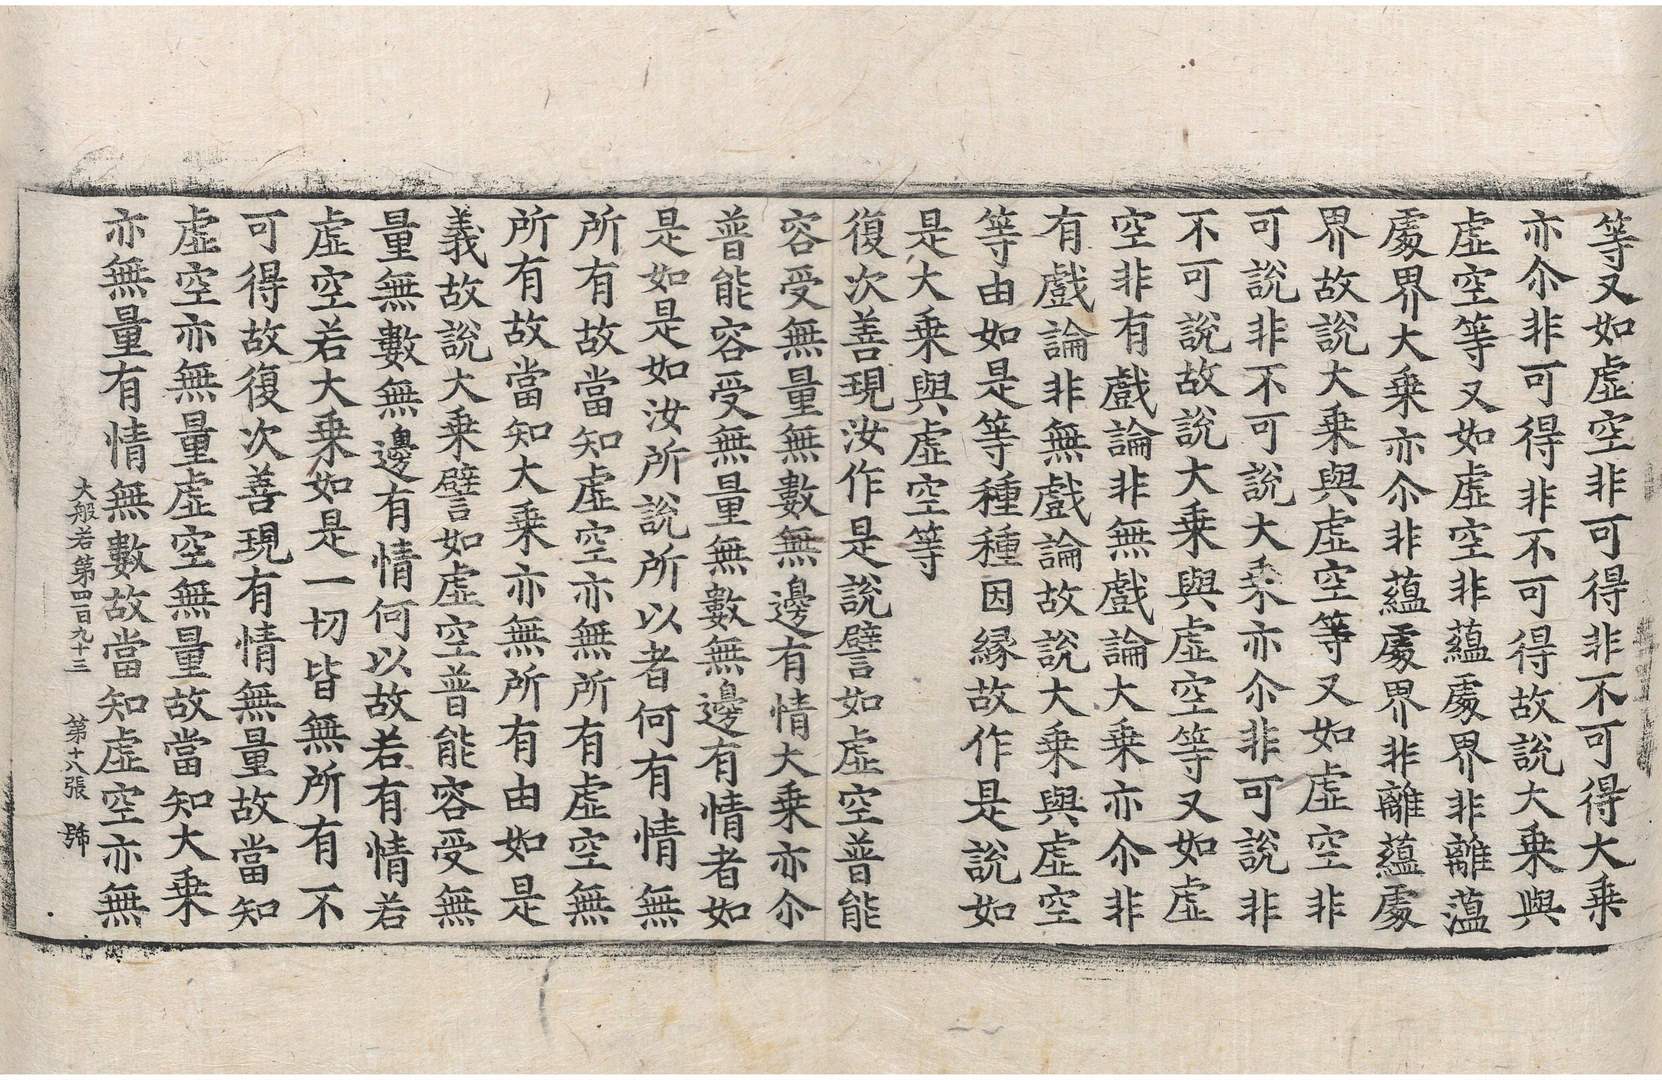 等又如虛空非可得非不可得大乗
亦尒非可得非不可得故說大乗與
虛空等又如虛空非蘊處界非離薀
處界大乗亦尒非蘊處界非離蘊處
界故說大乗與虛空等又如虛空非
可說非不可說大乗亦尒非可說非
不可說故說大乗與虛空等又如虛
空非有戲論非無戲論大乗亦尒非
有戲論非無戲論故說大乗與虛空
等由如是等種種因縁故作是說如
是大乗與虛空等
復次善現汝作是說譬如虛空普能
容受無量無數無邊有情大乗亦尒
普能容受無量無數無邊有情者如
是如是如汝所說所以者何有情無
所有故當知虛空亦無所有虛空無
所有故當知大乗亦無所有由如是
義故說大乗譬如虛空普能容受無
量無數無邊有情何以故若有情若
虛空若大乗如是一切皆無所有不
可得故復次善現有情無量故當知
虛空亦無量虛空無量故當知大乗
亦無量有情無數故當知虛空亦無
大般若第四百九十三 第十八張 號